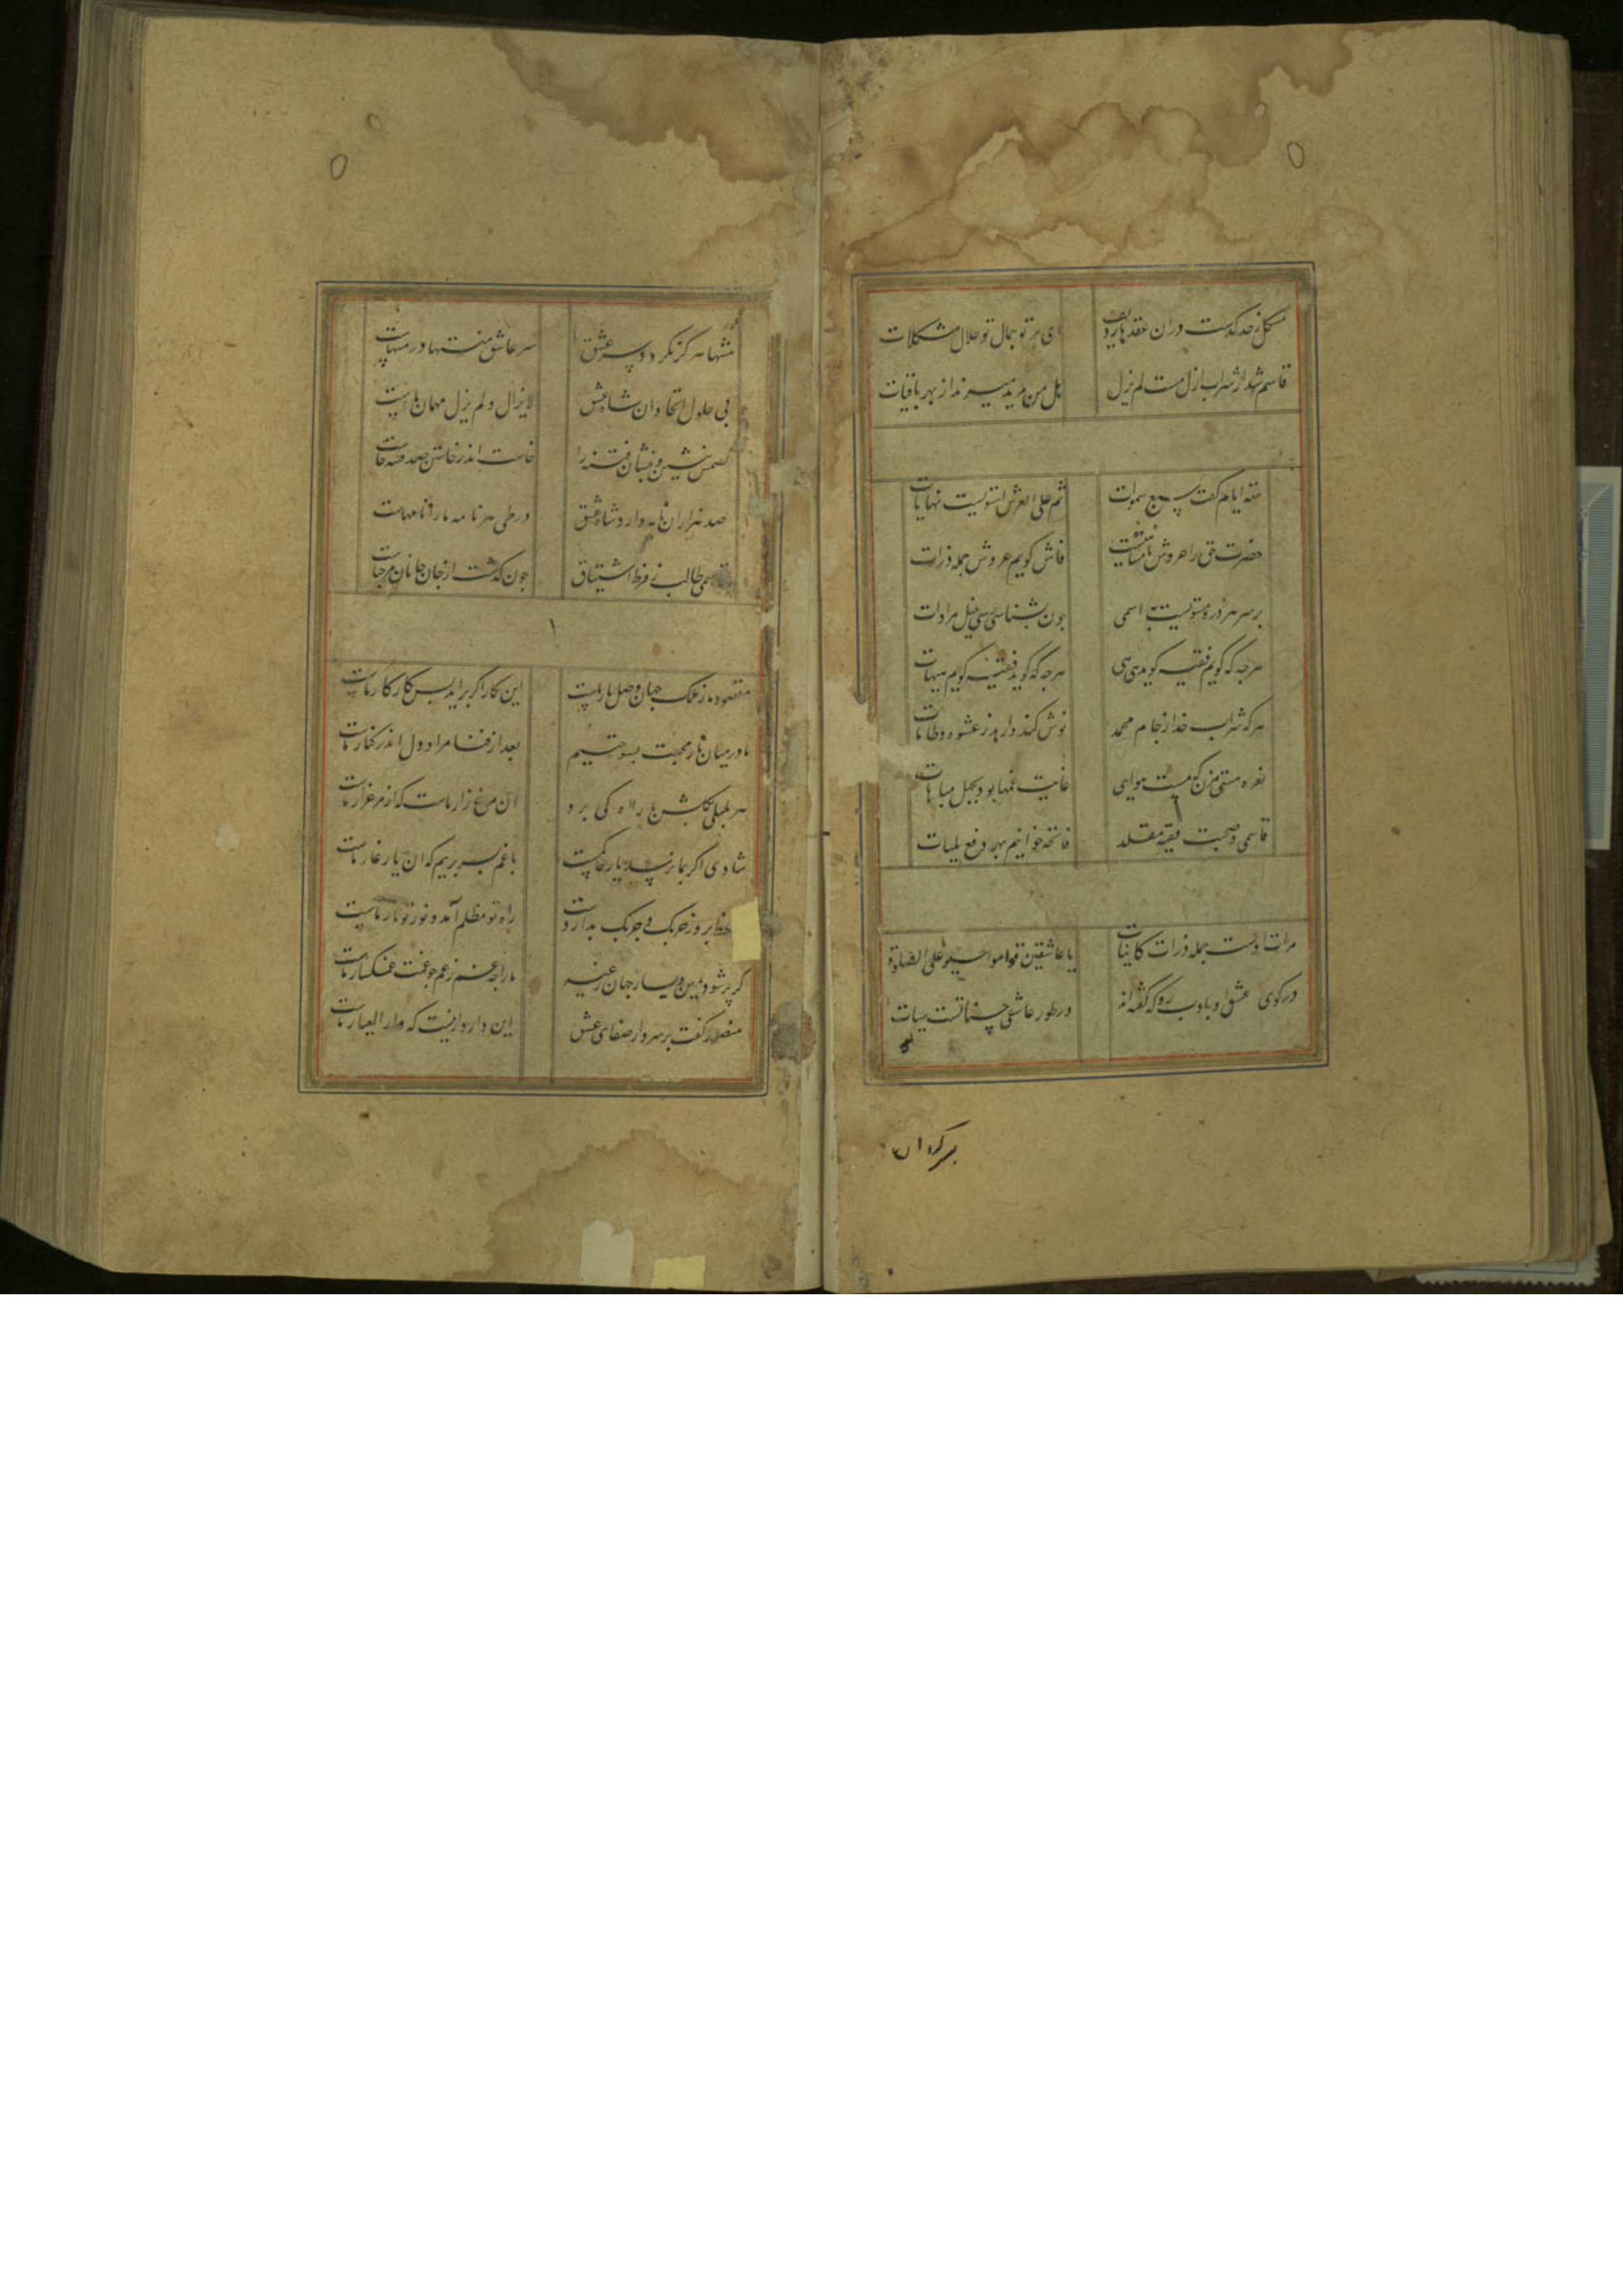 مشکل ز حد گذشت دران عقدهای زلف ای پرتو جمال تو حلال مشکلات
قاسم شد از شراب ازل مست لم یزل هل من مزید میزند از بهر باقیات
سته ایام گفت سبع سموات ثم علی العرش استویست نهایات
حضرت حق را عروش نامتناهیست فاش کویم عروش جمله ذرات
بر سر هر ذره مستویست به اسمی جون بشناسی رسی بنیل مرادات
هرجه که کویم فقیه کوید هی هی هرجه که کوید فقیه کویم هیهات
هر که شراب خدا ز جام محمد نوش کند وارهد ز عشوه و طامات
نعره مستی مزن که مست هوایی غایت غمها بود بجهل مباهات
قاسمی و صحبت فقیه مقلد فاتحه خوانیم بهر دفع بلیات
مرات اوست جمله ذرات کاینات یا عاشقین قوموا حیوا علی الصلوة
در کوی عشق او بادب رو که گفته اند در طور عاشقی حسناتست سیات
برکران
منتها هرکز نکردد سر عشق سر عاشق منتها در منتهاست
بی حلول اتحاد ان شاه عشق لایزال و لم یزل مهمان ماست
بنشین و بنشان فتنه را خاست اندر خاستن صد فتنه خاست
صد هزاران نامه دارد شاه عشق در طی هر نامه ما را نامهاست
قاسمی طالب ز فرط اشتیاق جون گذشت از جان جانان مرحباست
۱
مقصود ما ز ملک جهان وصل یار ماست این کار اکر براید بس کار کار ماست
ما در میان نار محبت بسوختیم بعد از فنا مراد دل اندر کنار ماست
هر بلبلی بکلشن ما راه کی برد ان مرغ زار ماست که از مرغزار ماست
شادی اکر بما نرسد یار ما غمست با غم بسر بریم که ان یار غار ماست
راه تو مظلم آمد و نور تو نار ماست
کر پر شود یمین و یسار جهان ز غم ما را جه غم ز غم جو غمت غمکسار ماست
منصور گفت بر سر دار صفای عشق این دار دار نیست که دار العیار ماست